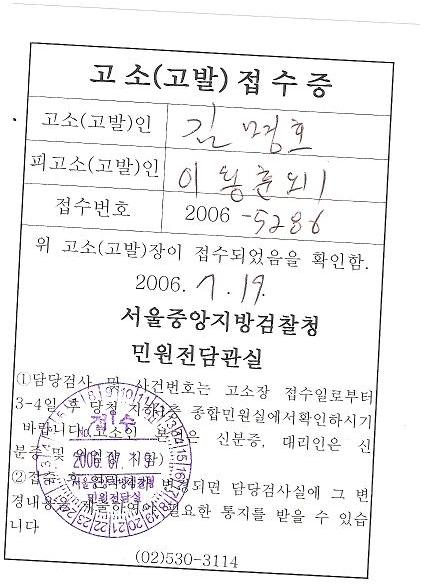 고 소(고발) 접 수 증
고소(고발)인 김 명호
피고소(고발)인 이 용훈외 1
접수번호 2006 -5286
위 고소(고발)장이 접수되었음을 확인함.
2006. 7. 19.
서울중앙지방검찰청
민원전담관실
①담당검사 및 사건번호는 고소장 접수일로부터
3-4일 후 당청 지하1층 종합민원실에서확인하시기
바랍니다.(고소인 본인은 신분증, 대리인은 신
분증 및 위임장 지참)
②접수 후 변경되면 담당검사실에 그 변
경내용을 필요한 통지를 받을 수 있습
니다
(02)530-3114
접수
2006. 07. 19
서울중앙지방검찰청
민원전담실